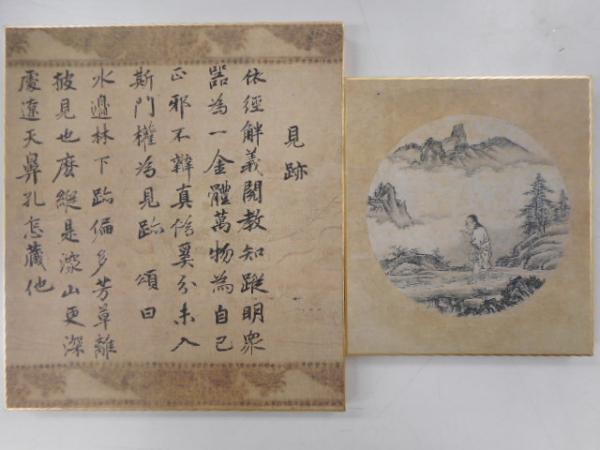 見跡
依經解義閱教知蹤明衆
器為一金體萬物為自己
正邪不辨真偽奚分未入
斯門權為見跡 頌曰
水邊林下跡偏多芳草離
披見也麼縱是深山更深
處遼天鼻孔怎藏他